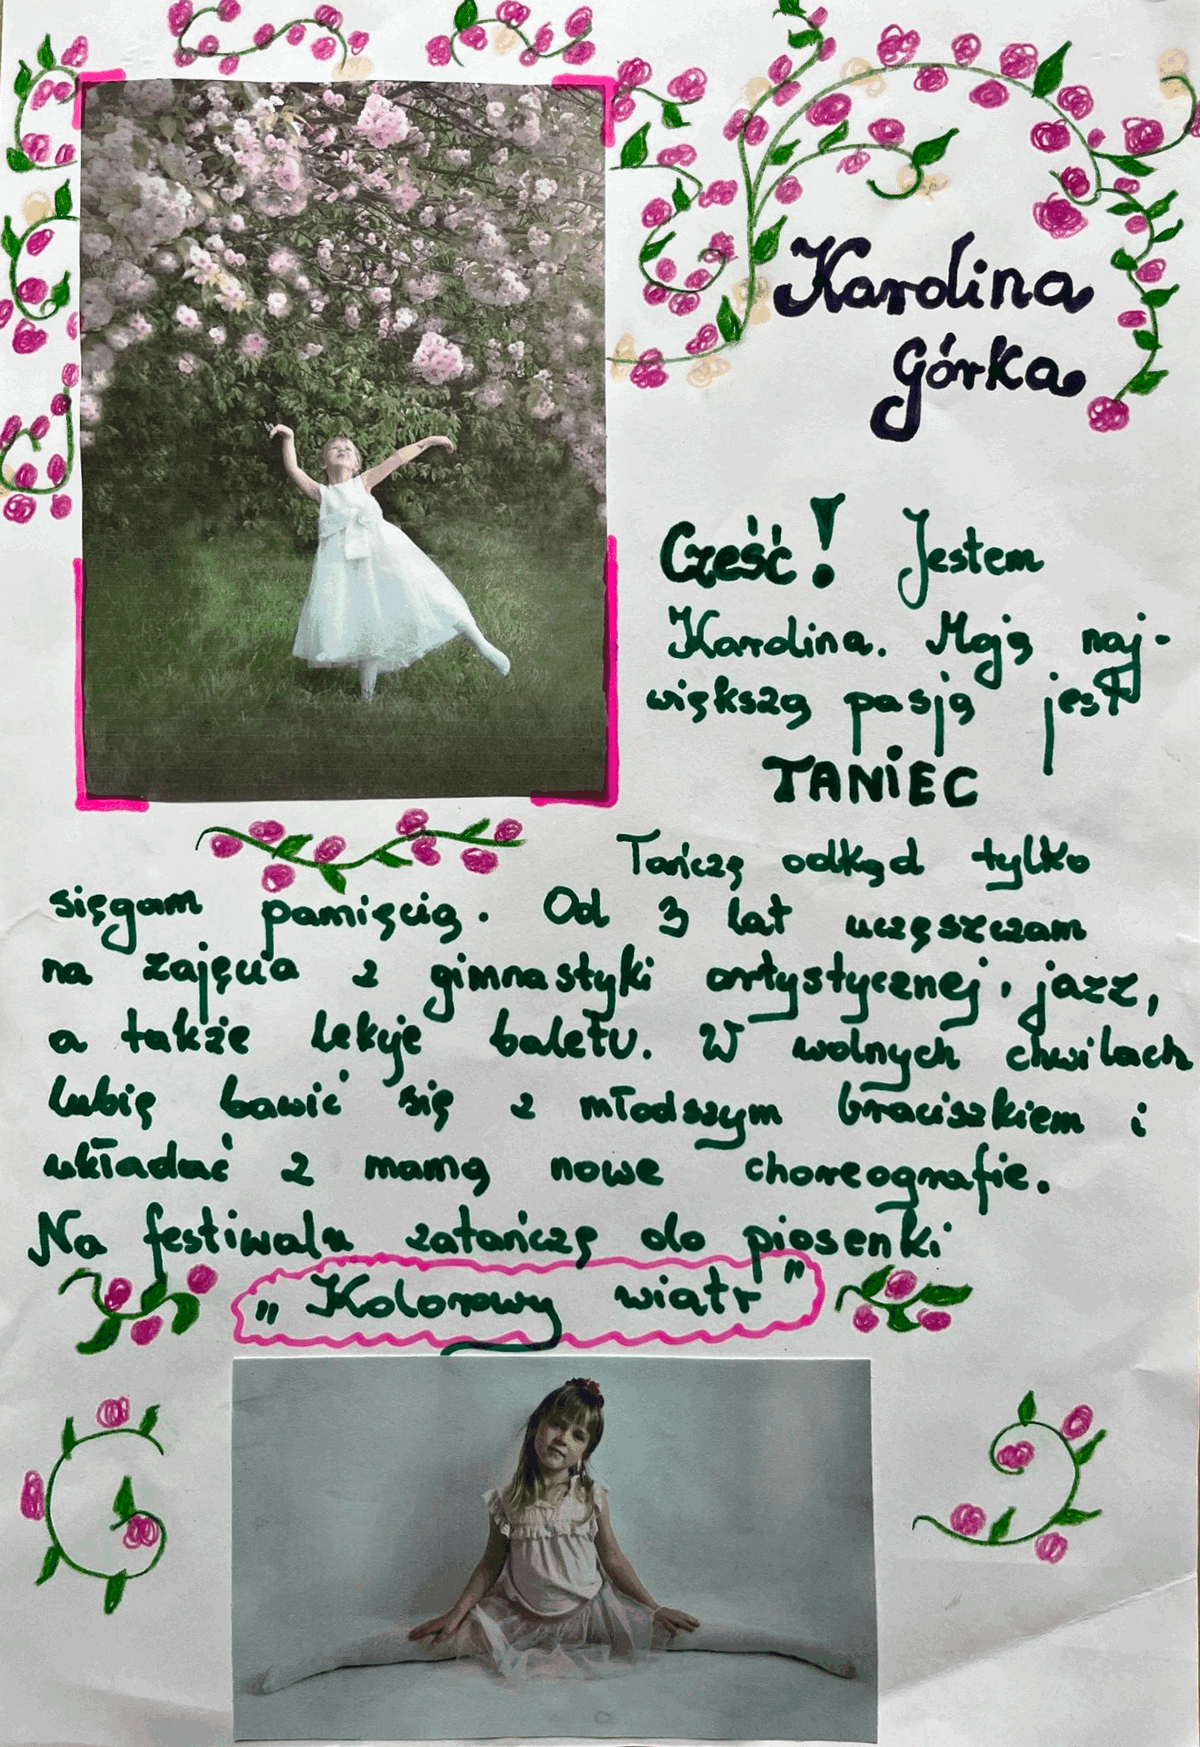 Karolina
Górka
Cześć! Jestem
Karolina. Moją naj-
większą pasją jest
TANiEC
Tańczę odkąd tylko
sięgam pamięcią. Od 3 lat uczęszczam
na zajęcia z gimnastyki artystycznej, jazz,
a także lekcje baletu. W wolnych chwilach
lubię bawić się z młodszym braciszkiem i
układać z mamą nowe choreografie.
Na festiwalu zatańczę do piosenki
„Kolorowy wiatr"